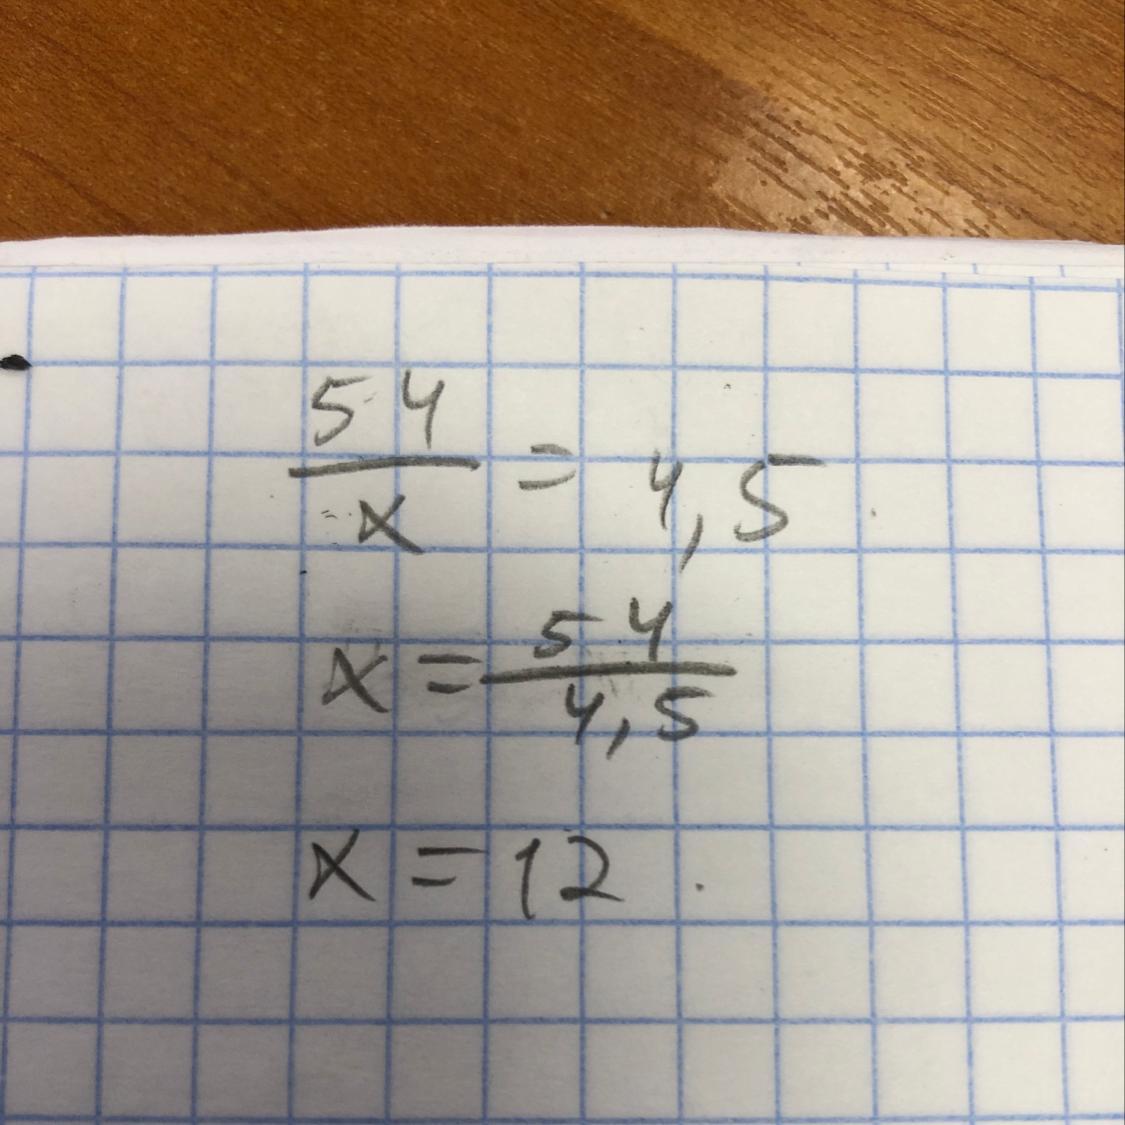 54/x = 4,5
x = 54/4,5
x = 12.